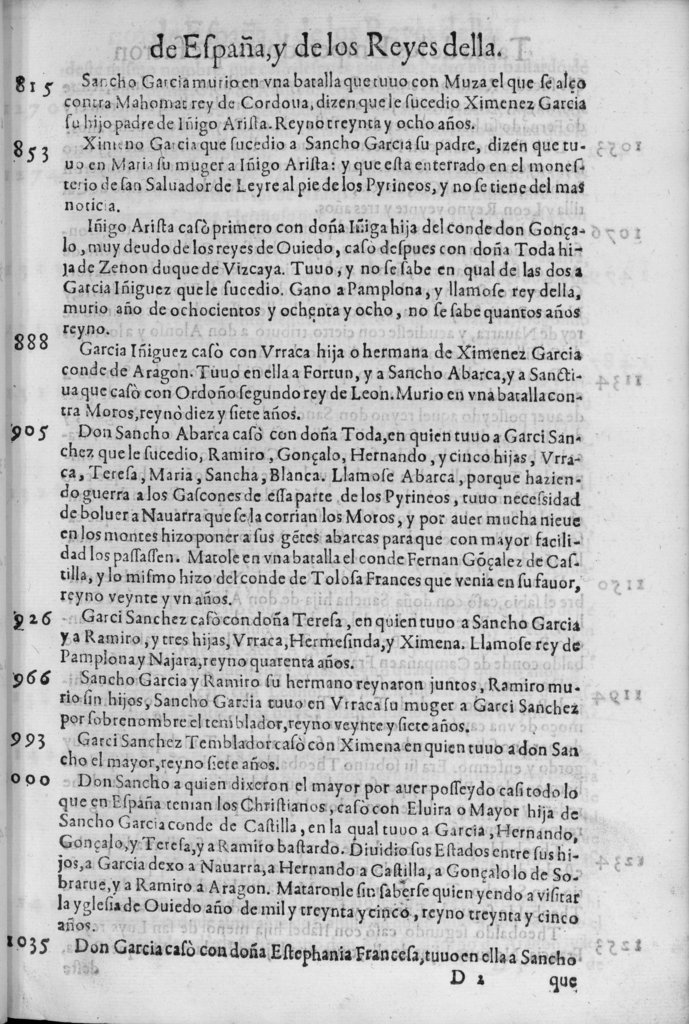 de España, y de los Reyes della.
815 Sancho Garcia murio en vna batalla que tuuo con Muza el que se alço
contra Mahomat rey de Cordoua, dizen que le sucedio Ximenez Garcia
su hijo padre de Iñigo Arista. Reyno treynta y ocho años.
853 Ximeno Garcia que sucedio a Sancho Garcia su padre, dizen que tu-
uo en Maria su muger a Iñigo Arista: y que esta enterrado en el mones-
terio de san Saluador de Leyre al pie de los Pyrineos, y no se tiene del mas
noticia.
Iñigo Arista casò primero con doña Iñiga hija del conde don Gonça-
lo, muy deudo de los reyes de Ouiedo, caso despues con doña Toda hi-
ja de Zenon duque de Vizcaya. Tuuo, y no se sabe en qual de las dos a
Garcia Iñiguez que le sucedio. Gano a Pamplona, y llamose rey della,
murio año de ochocientos y ochenta y ocho, no se sabe quantos años
reyno.
888 Garcia Iñiguez casò con Vrraca hija o hermana de Ximenez Garcia
conde de Aragon. Tuuo en ella a Fortun, y a Sancho Abarca, y a Sancti-
ua que casò con Ordoño segundo rey de Leon. Murio en vna batalla con-
tra Moros, reynò diez y siete años.
905 Don Sancho Abarca casò con doña Toda, en quien tuuo a Garci San-
chez que le sucedio, Ramiro, Gonçalo, Hernando, y cinco hijas, Vrra-
ca, Teresa, Maria, Sancha, Blanca. Llamose Abarca, porque hazien-
do guerra a los Gascones de essa parte de los Pyrineos, tuuo necessidad
de boluer a Nauarra que se la corrian los Moros, y por auer mucha nieue
en los montes hizo poner a sus gẽtes abarcas para que con mayor facili-
dad los passassen. Matole en vna batalla el conde Fernan Gõçalez de Cas-
tilla, y lo mismo hizo del conde de Tolosa Frances que venia en su fauor,
reyno veynte y vn años.
926 Garci Sanchez casò con doña Teresa, en quien tuuo a Sancho Garcia
y a Ramiro, y tres hijas, Vrraca, Hermesinda, y Ximena. Llamose rey de
Pamplona y Najara, reyno quarenta años.
966 Sancho Garcia y Ramiro su hermano reynaron juntos, Ramiro mu-
rio sin hijos, Sancho Garcia tuuo en Vrraca su muger a Garci Sanchez
por sobrenombre el temblador, reyno veynte y siete años.
993 Garci Sanchez Temblador casò con Ximena en quien tuuo a don San
cho el mayor, reyno siete años.
000 Don Sancho a quien dixeron el mayor por auer posseydo casi todo lo
que en España tenian los Christianos, casò con Eluira o Mayor hija de
Sancho Garcia conde de Castilla, en la qual tuuo a Garcia, Hernando,
Gonçalo, y Teresa, y a Ramiro bastardo. Diuidio sus Estados entre sus hi-
jos, a Garcia dexo a Nauarra, a Hernando a Castilla, a Gonçalo lo de So-
brarue, y a Ramiro a Aragon. Mataronle sin saberse quien yendo a visitar
la yglesia de Ouiedo año de mil y treynta y cinco, reyno treynta y cinco
años.
1035 Don Garcia casò con doña Estephania Francesa, tuuo en ella a Sancho
D 2 que